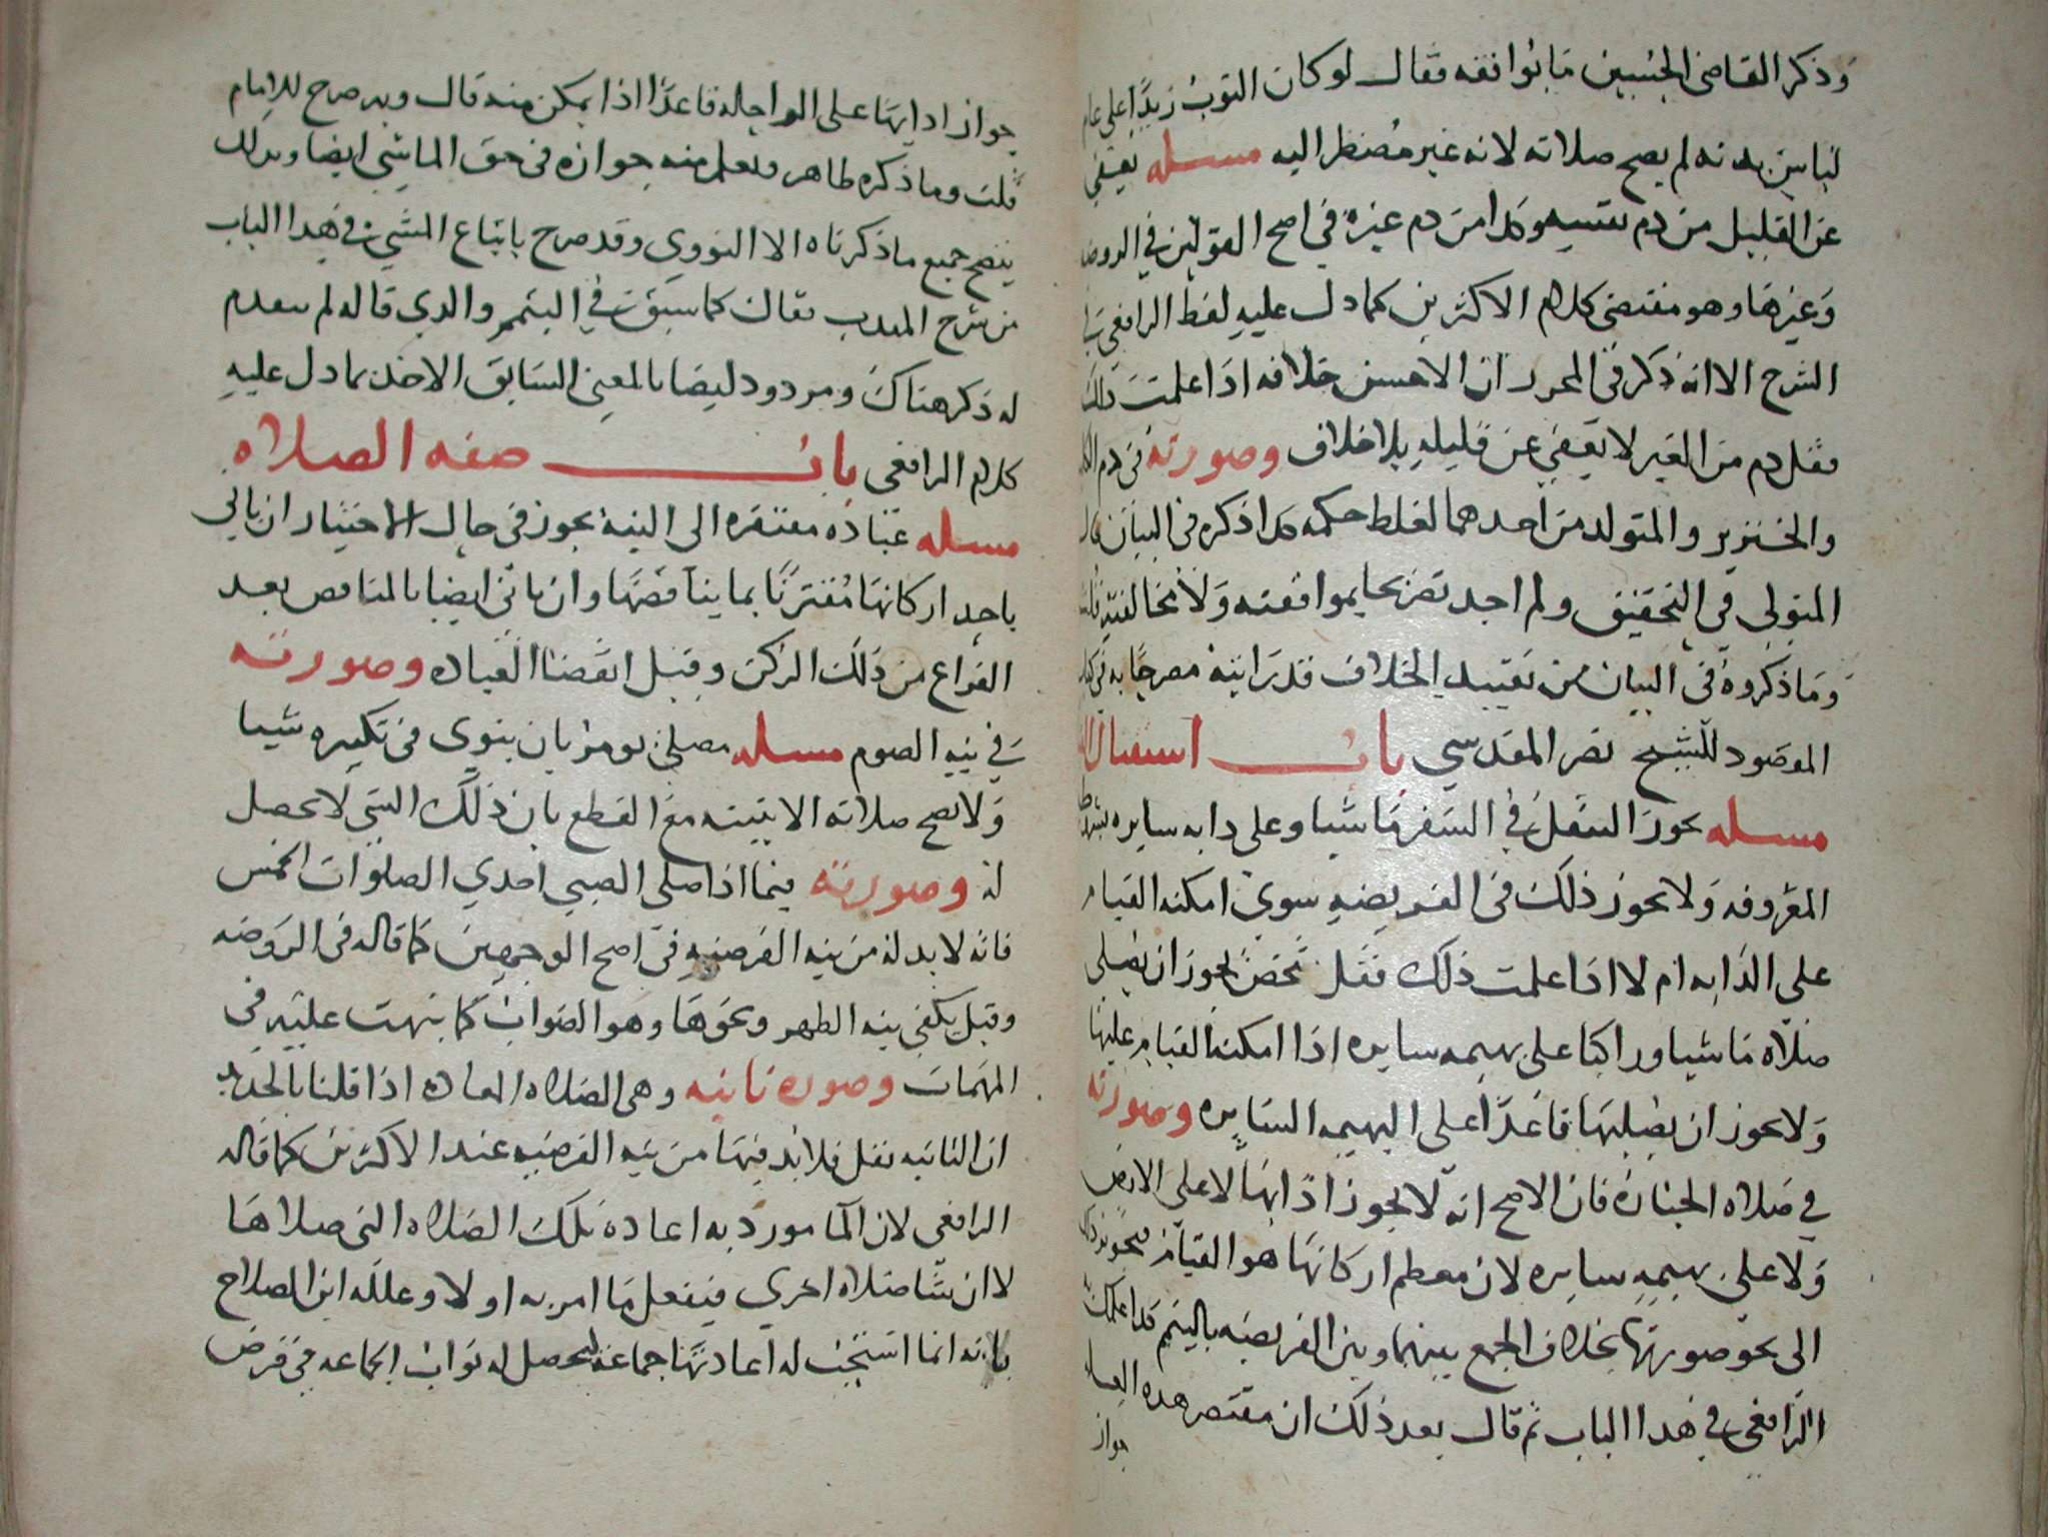 وذكر القاضي الحسين ما يوافقه فقال لو كان الثوب زيدا على
لباس بدنه لم يصح صلاته لانه غير مضطر اليه مسله يعفى
عن القليل من دم نفسه وكدا من دم غيره في اصح القولين في الروضه
وغيرها وهو مقتضى كلام الاكثرين كما دل عليه لفظ الرافعي في
الشرح الا انه ذكر في المحرر ان الاحسن خلافه اذا علمت ذلك
فقل دم من الغير لا يعفى عن قليله بلا خلاف وصورته في دم الكلب
والخنزير والمتولد من احدهما لغلط حكمه كدا ذكره في البيان قال
المتولي في التحقيق ولم اجد تصريحا بموافقته ولا بمخالفته قلت
وما ذكروه في البيان من تقييد الخلاف قد رايته مصرحا به في كتاب
المقصود للشيخ نصر المقدسي باب استقبال
مسله يجوز التنفل في السفر ماشيا وعلى دابه سايره بشروطه
المعروفه ولا يجوز ذلك في الفريضه سوى امكنه القيام
على الدابه ام لا اذا علمت ذلك فقل شخص يجوز ان يصلي
صلاه ماشيا وراكبا على بهيمه سايره اذا امكنه القيام عليها
ولا يجوز ان يصليها قاعدا على البهيمه السايره وصورته
في صلاه الجنازه فان الاصح انه لا يجوز اداؤها لا على الارض
ولا على بهيمه سايره لان معظم اركانها هو القيام فيجوز ذلك
الى نحو صورتها بخلاف الجمع بينهما وبين الفريضه بالتيمم كدا علله
الرافعي في هدا الباب ثم قال بعد ذلك ان مقتضى هده العله
جواز
جواز ادايها على الراحله قاعدا اذا يمكن منه قال وبه صرح للامام
قلت وما ذكره طاهر وتعلم منه جوازه في حق الماشي ايضا وبدلك
يتضح جميع ما ذكرناه الا النووي وقد صرح باتباع المشي في هدا الباب
من شرح المهدب فقال كما سبق في التيمم والدي قاله لم يتقدم
له ذكر هناك ومردود ايضا بالمعنى السابق الاخذ بما دل عليه
كلام الرافعي باب صفه الصلاه
مسله عباده مفتقره الى النيه يجوز في حال الاختيار ان ياتي
باحد اركانها مقترنا بما يناقضها وان ياتي ايضا بالمناقض بعد
الفراغ من ذلك الركن وقبل انقضا العباده وصورته
في نيه الصوم مسله مصلي يومر بان ينوي في تكبيره شيا
ولا تصح صلاته الا بنيته مع القطع بان ذلك الشي لا يحصل
له وصورته فيما اذا صلى الصبي احدي الصلوات الخمس
فانه لا بد له من نيه الفرضيه في اصح الوجهين كما قاله في الروضه
وقيل يكفي نيه الظهر ونحوها وهو الصواب كما نبهت عليه في
المهمات وصوره ثانيه وهي الصلاه المعاده اذا قلنا بالجديد
ان الثانيه نفل فلا بد فيها من نيه الفرضيه عند الاكثرين كما قاله
الرافعي لان المامور به اعاده تلك الصلاه التي صلاها
لا انشا صلاه اخري فيفعل ما امر به اولا وعلله ابن الصلاح
بانه انما استحب له اعادتها جماعه ليحصل له ثواب الجماعه في فرض